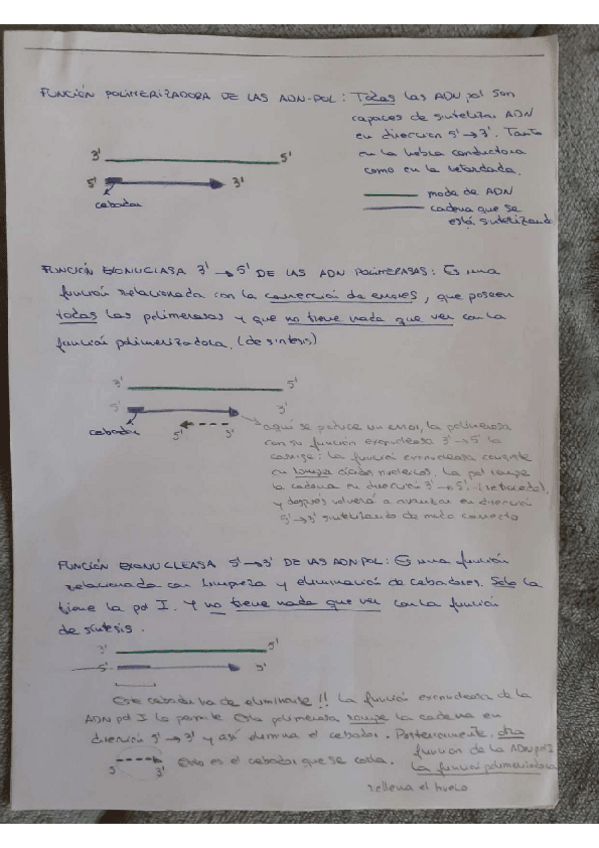 FUNCIÓN POLIMERIZADORA DE LAS ADN-POL: Todas las ADN pol son
capaces de sintetizar ADN
en dirección 5'→3'. Tanto
en la hebra conductora
como en la retardada.
3' 5'
5' 3'
cebador
molde de ADN
cadena que se
está sintetizando
FUNCIÓN EXONUCLASA 3'→5' DE LAS ADN POLIMERASAS: Es una
función relacionada con la corrección de errores, que poseen
todas las polimerasas y que no tiene nada que ver con la
función polimerizadora. (de síntesis)
3' 5'
5' 3'
cebador
5' 3'
aquí se produce un error, la polimerasa
con su función exonucleasa 3'→5' lo
corrige: la función exonucleasa consiste
en romper ácidos nucleicos. La pol rompe
la cadena en dirección 3'→5',
y después volverá a avanzar en dirección
5'→3' sintetizando de modo correcto
FUNCIÓN EXONUCLEASA 5'→3' DE LAS ADN POL: Es una función
relacionada con limpieza y eliminación de cebadores. Solo la
tiene la pol I. Y no tiene nada que ver con la función
de síntesis.
3' 5'
5' 3'
Este cebador ha de eliminarse!! La función exonucleasa de la
ADN pol I lo permite. Esta polimerasa rompe la cadena en
dirección 5'→3' y así elimina el cebador. Posteriormente, otra
función de la ADN pol I
5' 3' Esto es el cebador que se corta. La función polimerizadora
rellena el hueco